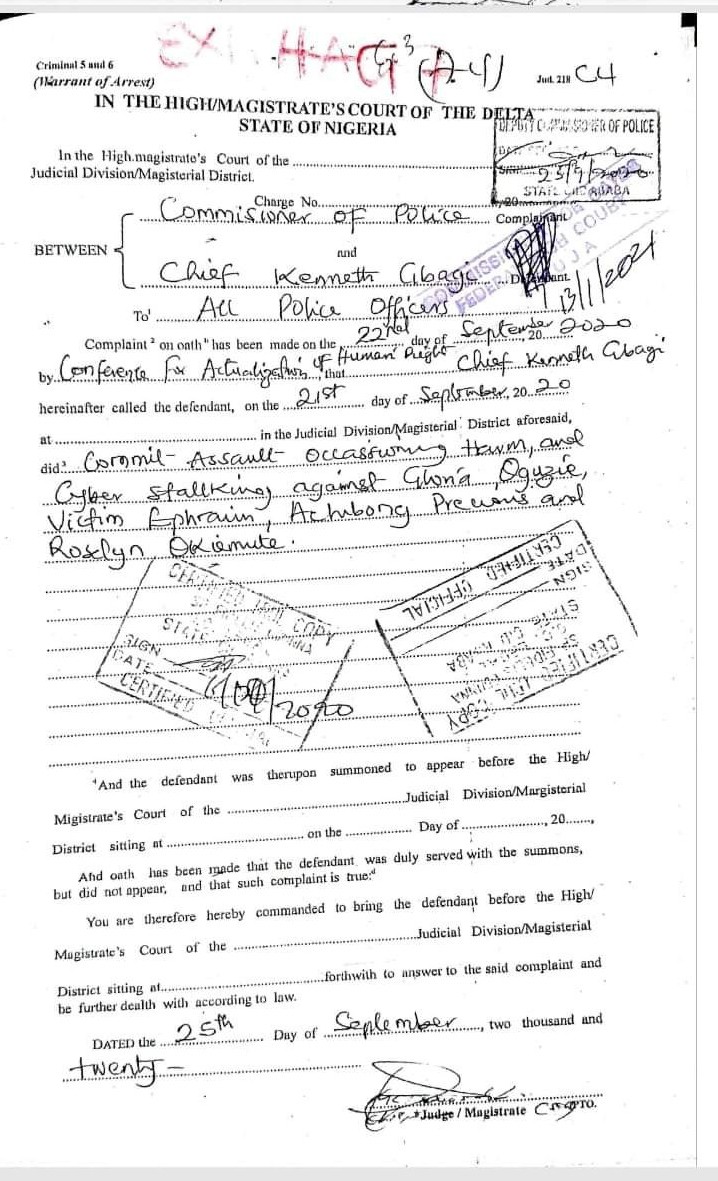 EX
H-A
Ex 3
(A-4)
Criminal 5 and 6
(Warrant of Arrest)
Jud. 218 C4
IN THE HIGH/MAGISTRATE'S COURT OF THE DELTA
STATE OF NIGERIA
DEPUTY COMMISSIONER OF POLICE
In the High.magistrate's Court of the
Judicial Division/Magisterial District.
25/9/2020
STATE CID ASABA
Charge No. 20
Commisioner of Police Complainant
BETWEEN and
Chief Kenneth Gbagi Defendant
13/1/2021
To' All Police Officers
Complaint ² on oath" has been made on the 22nd day of September 20 2020
by Conference for Actualization of Human Right that Chief Kenneth Gbagi
hereinafter called the defendant, on the 21st day of September, 20 20
at in the Judicial Division/Magisterial District aforesaid,
did³ Commit Assault Occassioning Harm, and
Cyber Stallking against Gloria Oguzie,
Victim Ephraim, Achibong Precious and
Roselyn Okiemute.
CERTIFIED TRUE COPY
STATE
SIGN
DATE
CERTIFIED
2020
CERTIFIED TRUE COPY
STATE CID ASABA
SIGN
DATE
CERTIFIED OFFICIAL
⁴And the defendant was therupon summoned to appear before the High/
Migistrate's Court of the Judicial Division/Margisterial
District sitting at on the Day of , 20 ,
And oath has been made that the defendant was duly served with the summons,
but did not appear, and that such complaint is true:⁴
You are therefore hereby commanded to bring the defendant before the High/
Magistrate's Court of the Judicial Division/Magisterial
District sitting at forthwith to answer to the said complaint and
be further dealth with according to law.
DATED the 25th Day of September , two thousand and
twenty -
Judge / Magistrate